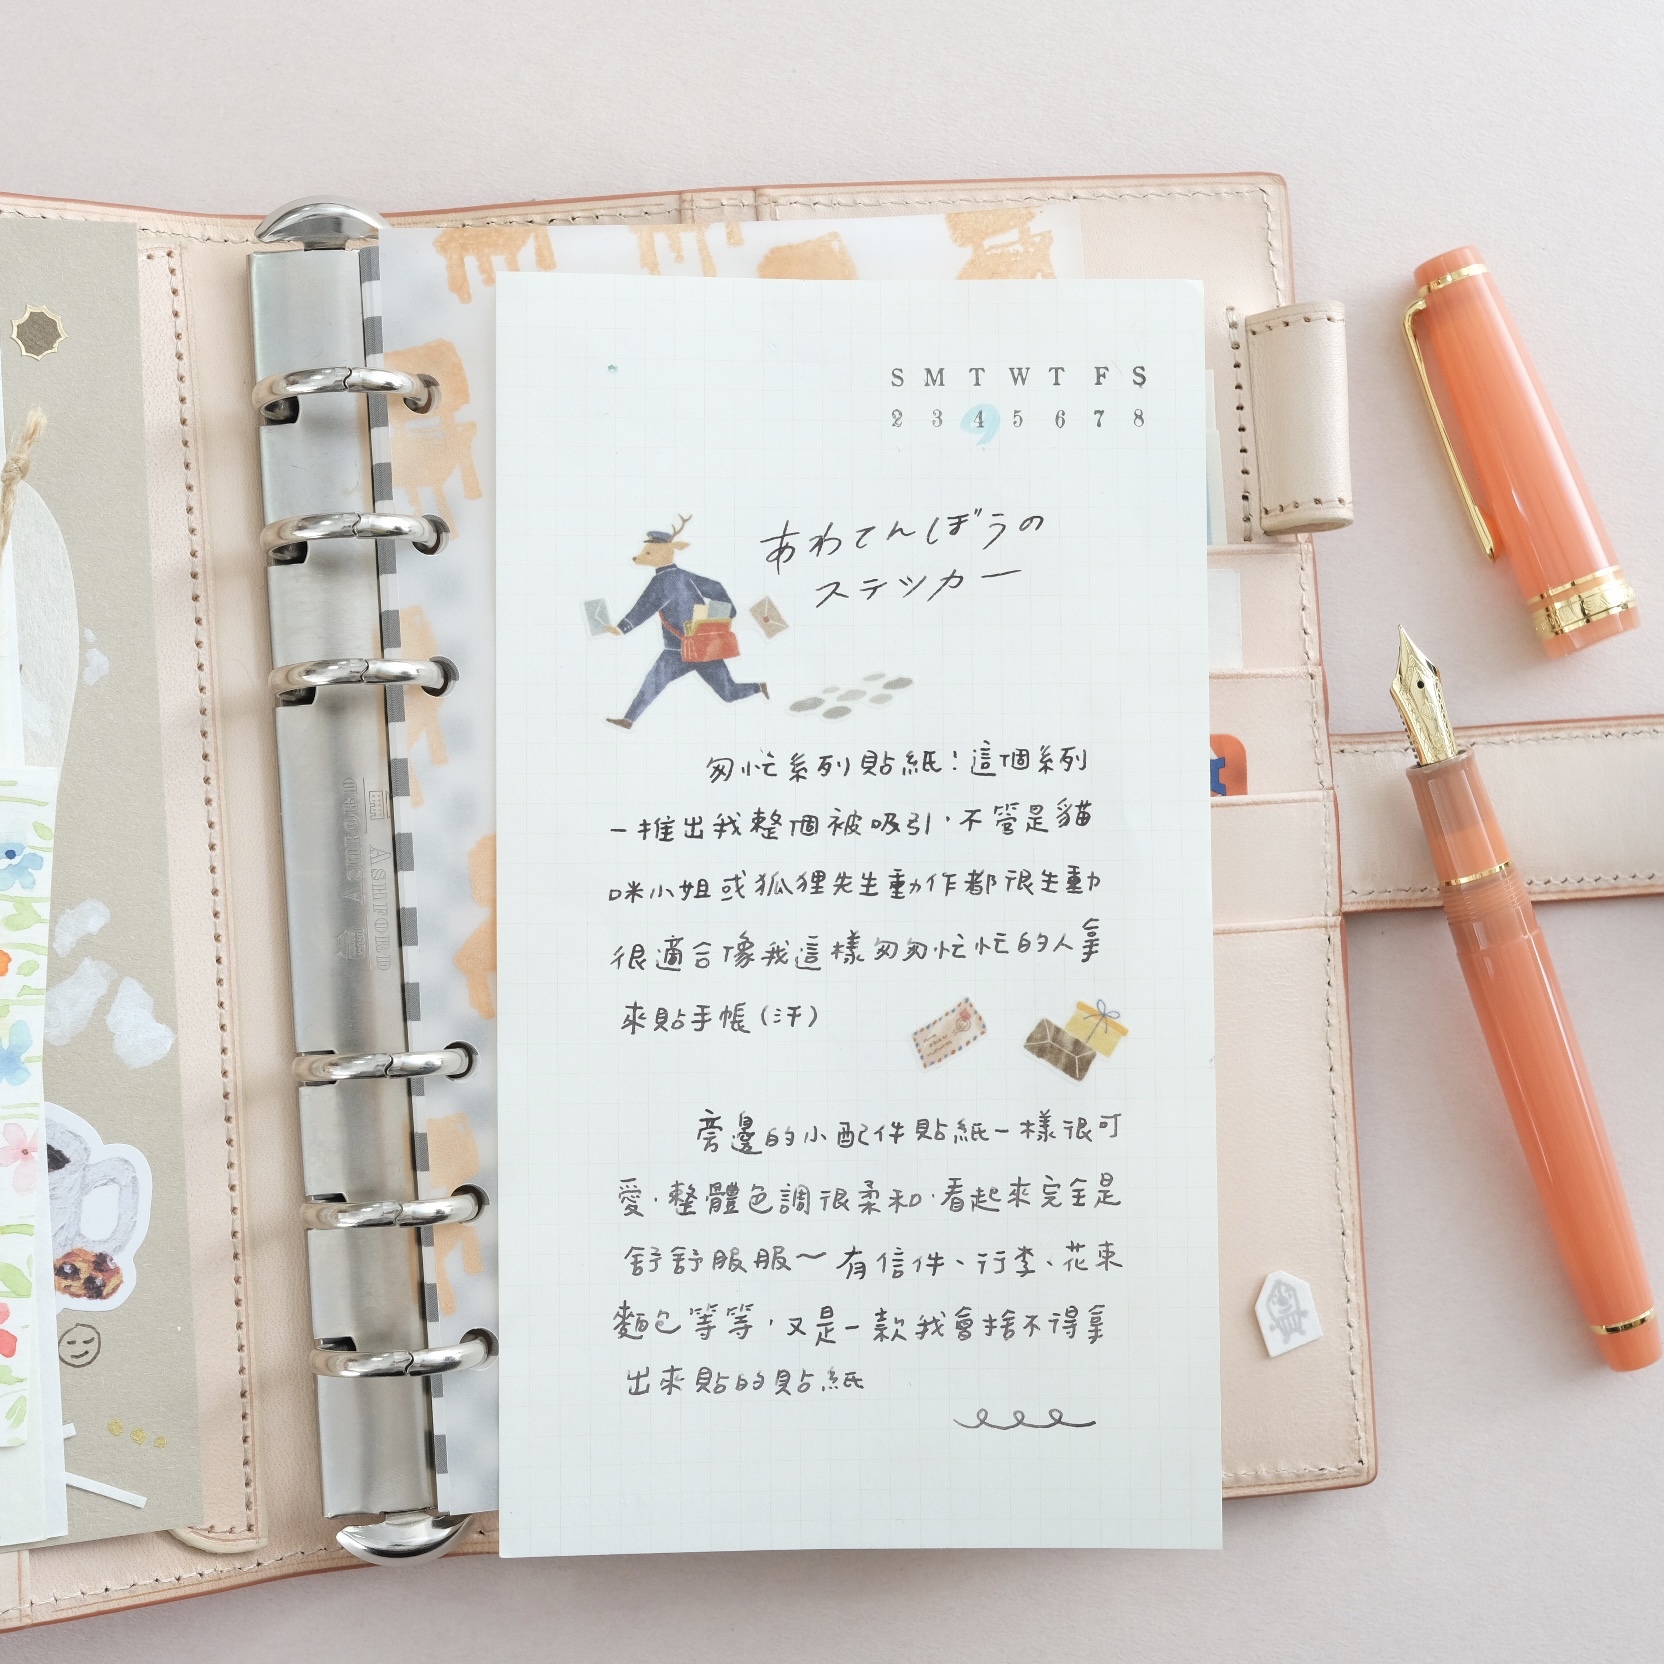 S M T W T F S
2 3 4 5 6 7 8
あわてんぼうの
ステッカー
匆忙系列貼紙！這個系列
一推出我整個被吸引，不管是貓
咪小姐或狐狸先生動作都很生動
很適合像我這樣匆匆忙忙的人拿
來貼手帳（汗）
旁邊的小配件貼紙一樣很可
愛，整體色調很柔和，看起來完全是
舒舒服服～有信件、行李、花束
麵包等等，又是一款我會捨不得拿
出來貼的貼紙
ASHFORD